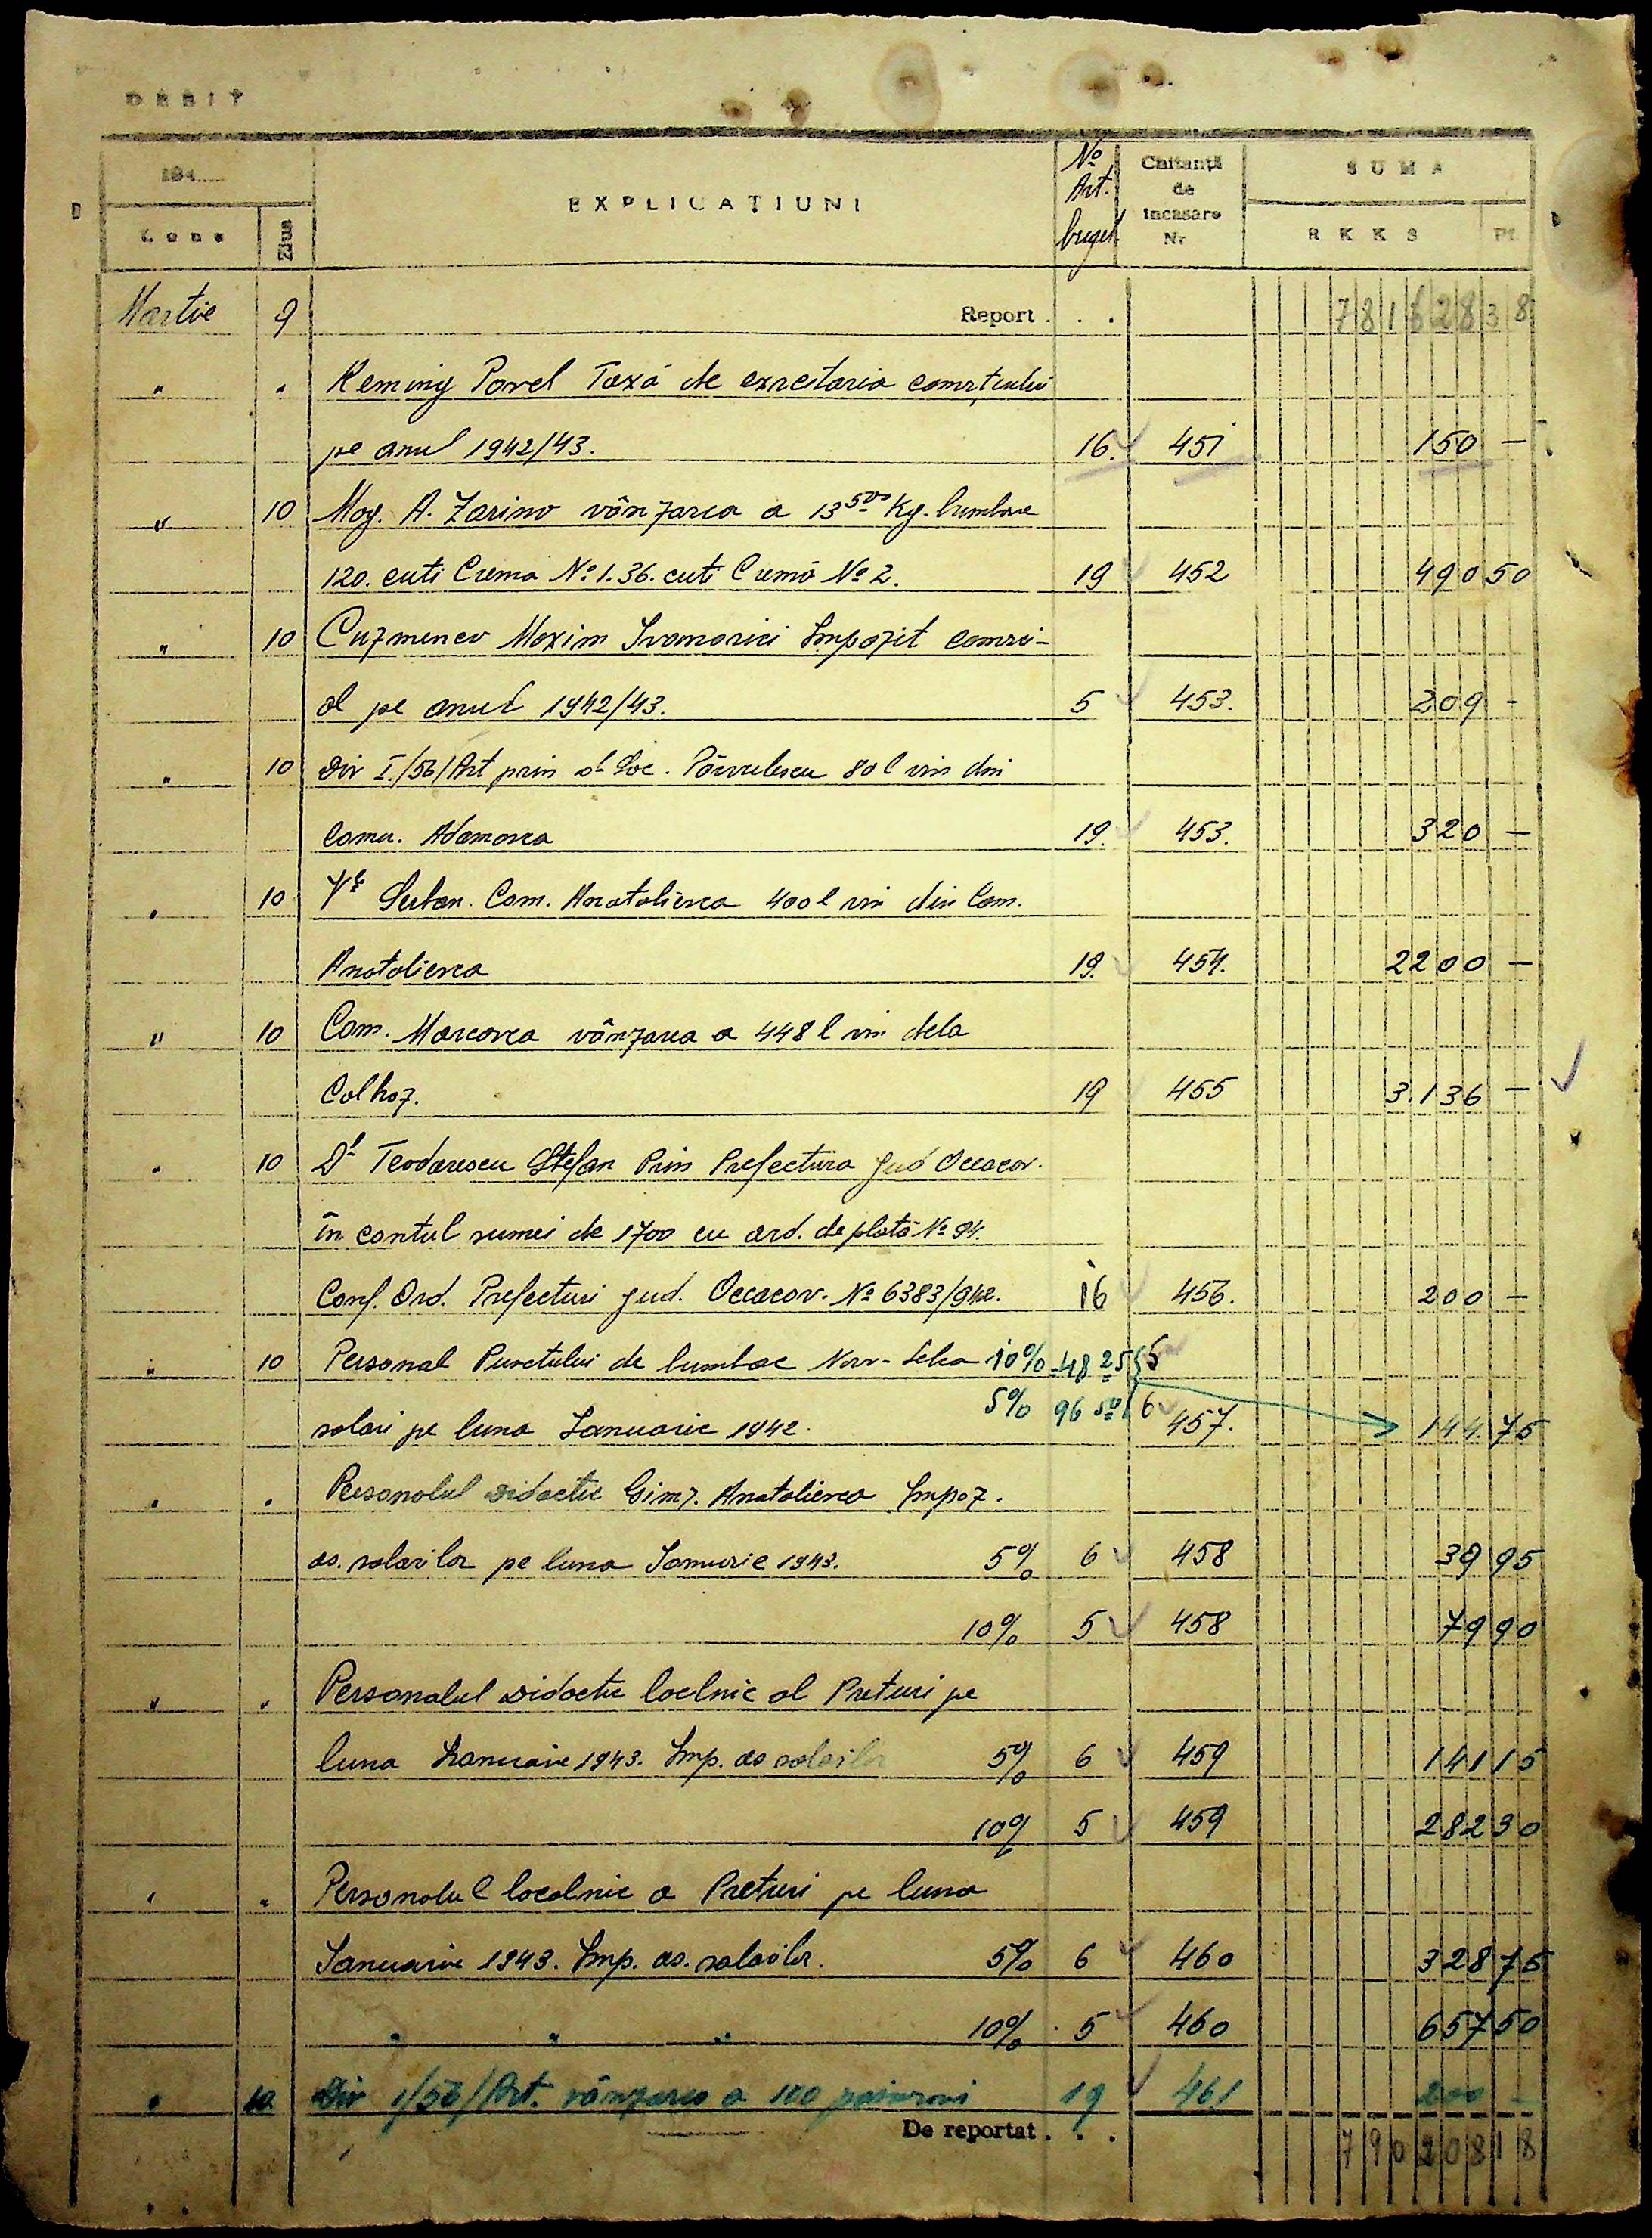 DEBIT
194......
EXPLICAȚIUNI
No Art. buget
Chitanță de incasare Nr.
SUMA
Luna
Ziua
RKKS
Pf.
Martie 9 Report . . . 781628 38
" " Keming Pavel Taxă de exrcitaria comrțului
pe anul 1942/43. 16. 451 150 —
" 10 Mag. A. Zarino vânzarea a 13 500 Kg. bumbac
120. cuti Crema No 1. 36. cuti Cremă No 2. 19 452 490 50
" 10 Cuzmenco Maxim Ivanovici Impozit comrci-
al pe anul 1942/43. 5 453. 209 -
" 10 Div I./56/Art prin sl. Loc. Pârvulescu 80 l vin din
Comu. Adamovca 19. 453. 320 —
" 10 Serban. Com. Anatolievca 400 l vin din Com.
Anatolievca 19. 454. 2200 —
" 10 Com. Marcovca vânzarea a 448 l vin dela
Colhoz. 19 455 3.136 —
" 10 Dl Teodorescu Ștefan Prin Prefectura Jud Oceacov.
în contul sumei de 1700 cu ord. de plată No 94.
Conf. Ord. Prefecturi jud. Oceacov. No 6383/942. 16 456. 200 —
" 10 Personal Punctului de bumbac 10% 48 25 5
5% 96 50 6
salari pe luna Ianuarie 1942. 457. 144. 75
" " Personalul didactic Gimz. Anatolievca Impoz.
as. salarilor pe luna Ianuarie 1943. 5% 6 458 39 95
10% 5 458 79 90
" " Personalul didactic loclnic al Preturi pe
luna Ianuarie 1943. Imp. as salarilor 5% 6 459 141 15
10% 5 459 282 30
" " Personalul localnic a Preturi pe luna
Ianuarie 1943. Imp. as. salarilor. 5% 6 460 328 75
" " " 10% 5 460 657 50
" 10. Div 1/56/Art. vânzarea a 100 19 461 200 —
De reportat . . . 790208 18